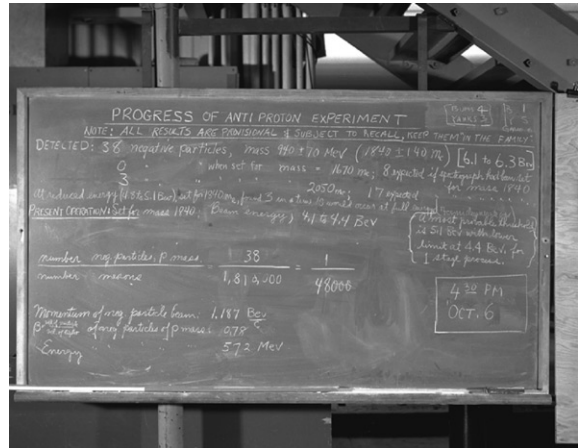 PROGRESS OF ANTIPROTON EXPERIMENT
NOTE: ALL RESULTS ARE PROVISIONAL & SUBJECT TO RECALL, KEEP THEM IN THE FAMILY.
DETECTED: 38 negative particles, mass 940 ± 70 MeV (1840 ± 140 me) [6.1 to 6.3 Bev]
0 " when set for mass = 1670 me; 8 expected if spectograph had been set
3 2050 me; 17 expected for mass 1840
At reduced energy (4.8 to 5.1 Bev), set for 1940 me, found 3 in a time 10 would
PRESENT OPERATION: Set for mass 1840. Beam energy, 4.1 to 4.4 Bev
threshold
is 5.1 Bev with lower
limit at 4.4 Bev. for
1 stage process.
number neg. particles, p mass = 38 = 1
number mesons 1,813,000 48000
4 30 PM
OCT. 6
Momentum of neg. particle beam: 1.187 Bev/c
β of neg. particles of p mass: 0.78
Energy 572 MeV